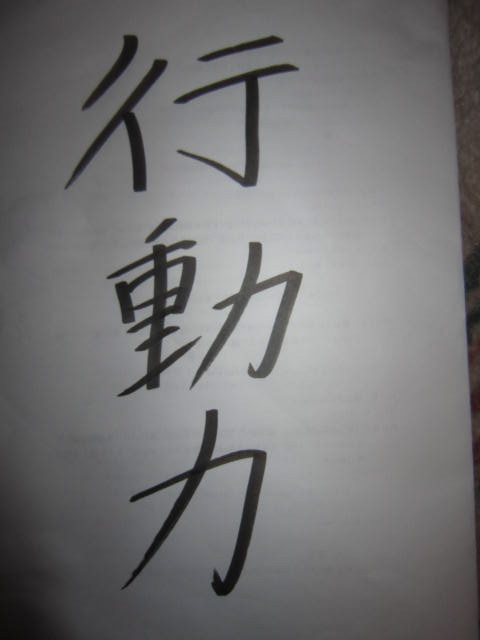 行動力